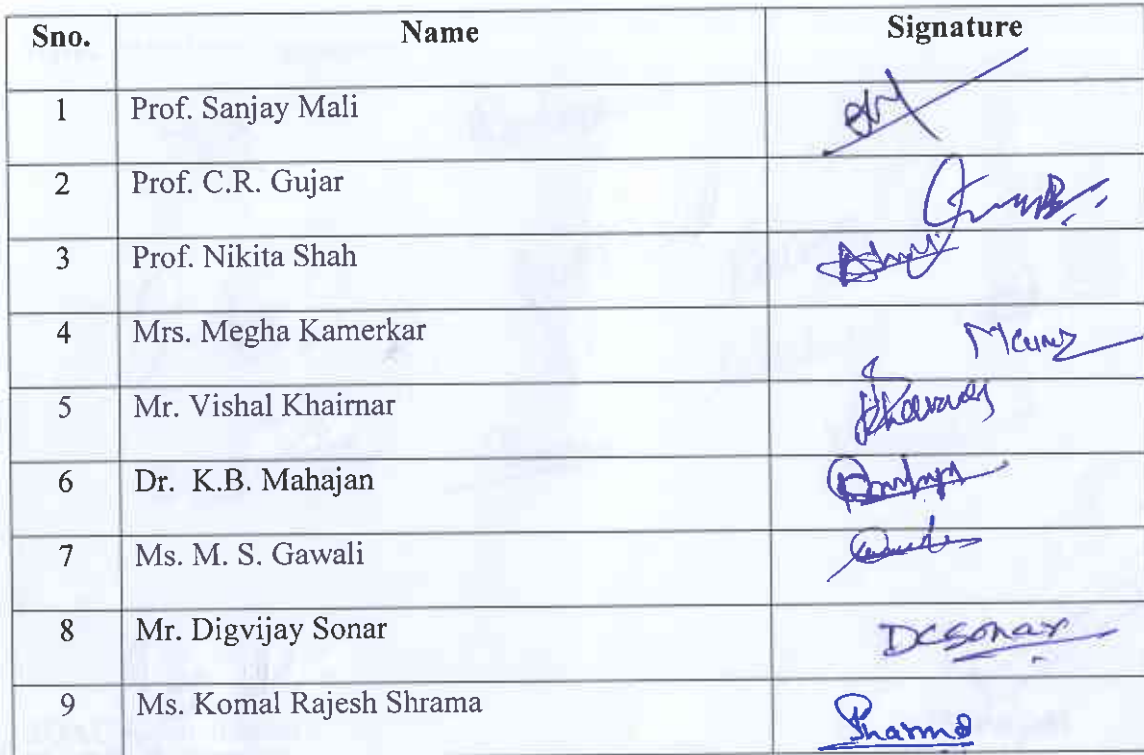 Sno. Name Signature
1 Prof. Sanjay Mali
2 Prof. C.R. Gujar
3 Prof. Nikita Shah
4 Mrs. Megha Kamerkar
5 Mr. Vishal Khairnar
6 Dr. K.B. Mahajan
7 Ms. M. S. Gawali
8 Mr. Digvijay Sonar DCSonar
9 Ms. Komal Rajesh Shrama